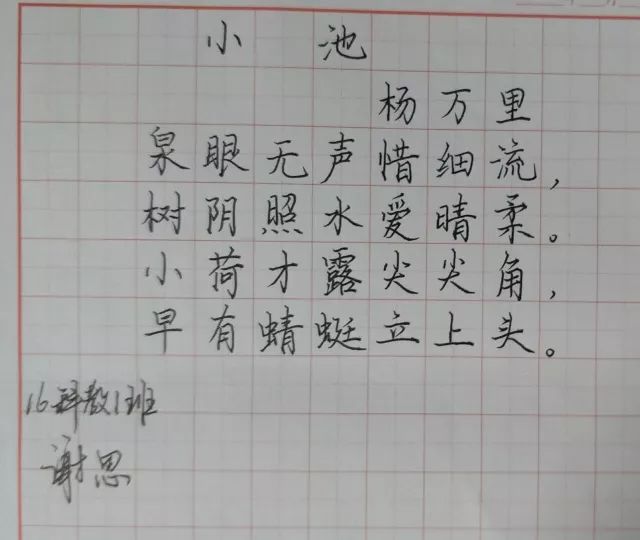 小池
杨万里
泉眼无声惜细流，
树阴照水爱晴柔。
小荷才露尖尖角，
早有蜻蜓立上头。
16科教1班
谢思